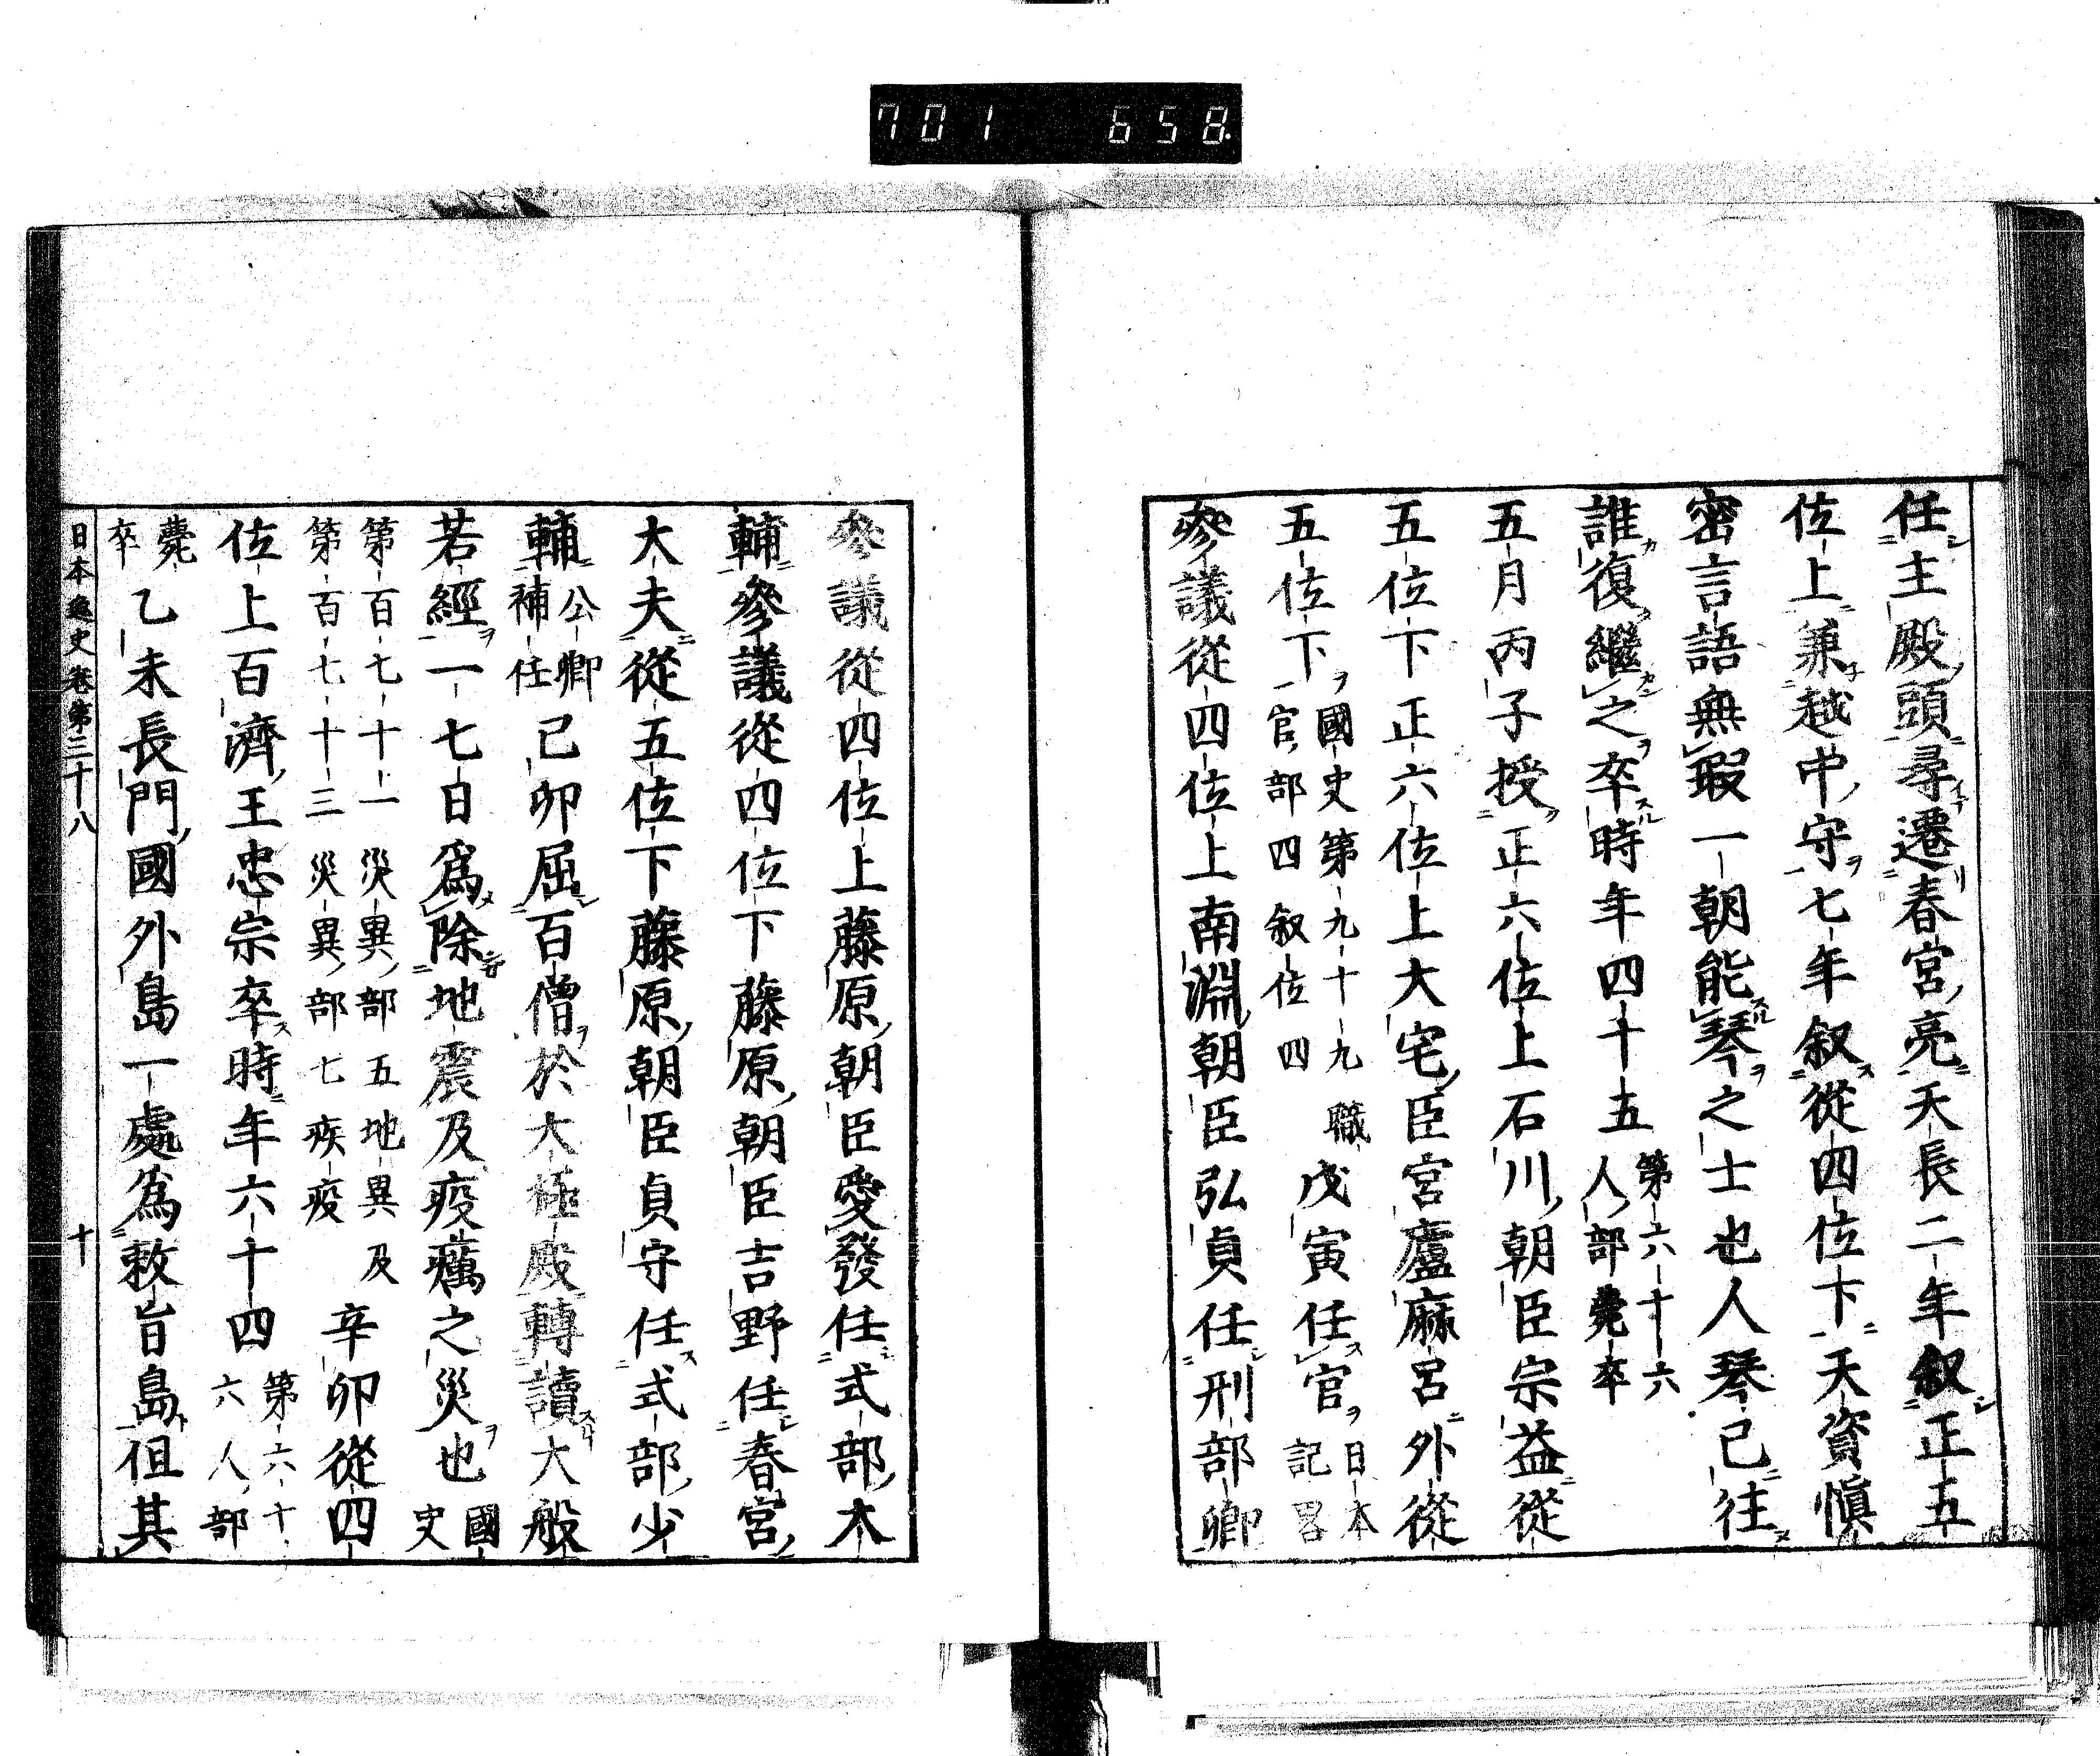 701 658
任主殿頭尋遷春宮亮天長二年叙正五
位上兼越中守七年叙從四位下天資愼
密言語無瑕一朝能琴之士也人琴已往
誰復繼之卒時年四十五
第六十六
人部薨卒
五月丙子授正六位上石川朝臣宗益從
五位下正六位上大宅臣宮廬麻呂外從
五位下
國史第九十九職
官部四叙位四
戊寅任官
日本
記畧
參議從四位上南淵朝臣弘貞任刑部卿
參議從四位上藤原朝臣愛發任式部大
輔參議從四位下藤原朝臣吉野任春宮
大夫從五位下藤原朝臣貞守任式部少
輔
公卿
補任
己卯屈百僧於大極殿轉讀大般
若經一七日爲除地震及疫癘之災也
國
史
第百七十一災異部五地異及
第百七十三災異部七疾疫
辛卯從四
位上百濟王忠宗卒時年六十四
第六十
六人部
薨
卒
乙未長門國外島一處爲敕旨島但其
日本逸史卷第三十八
十